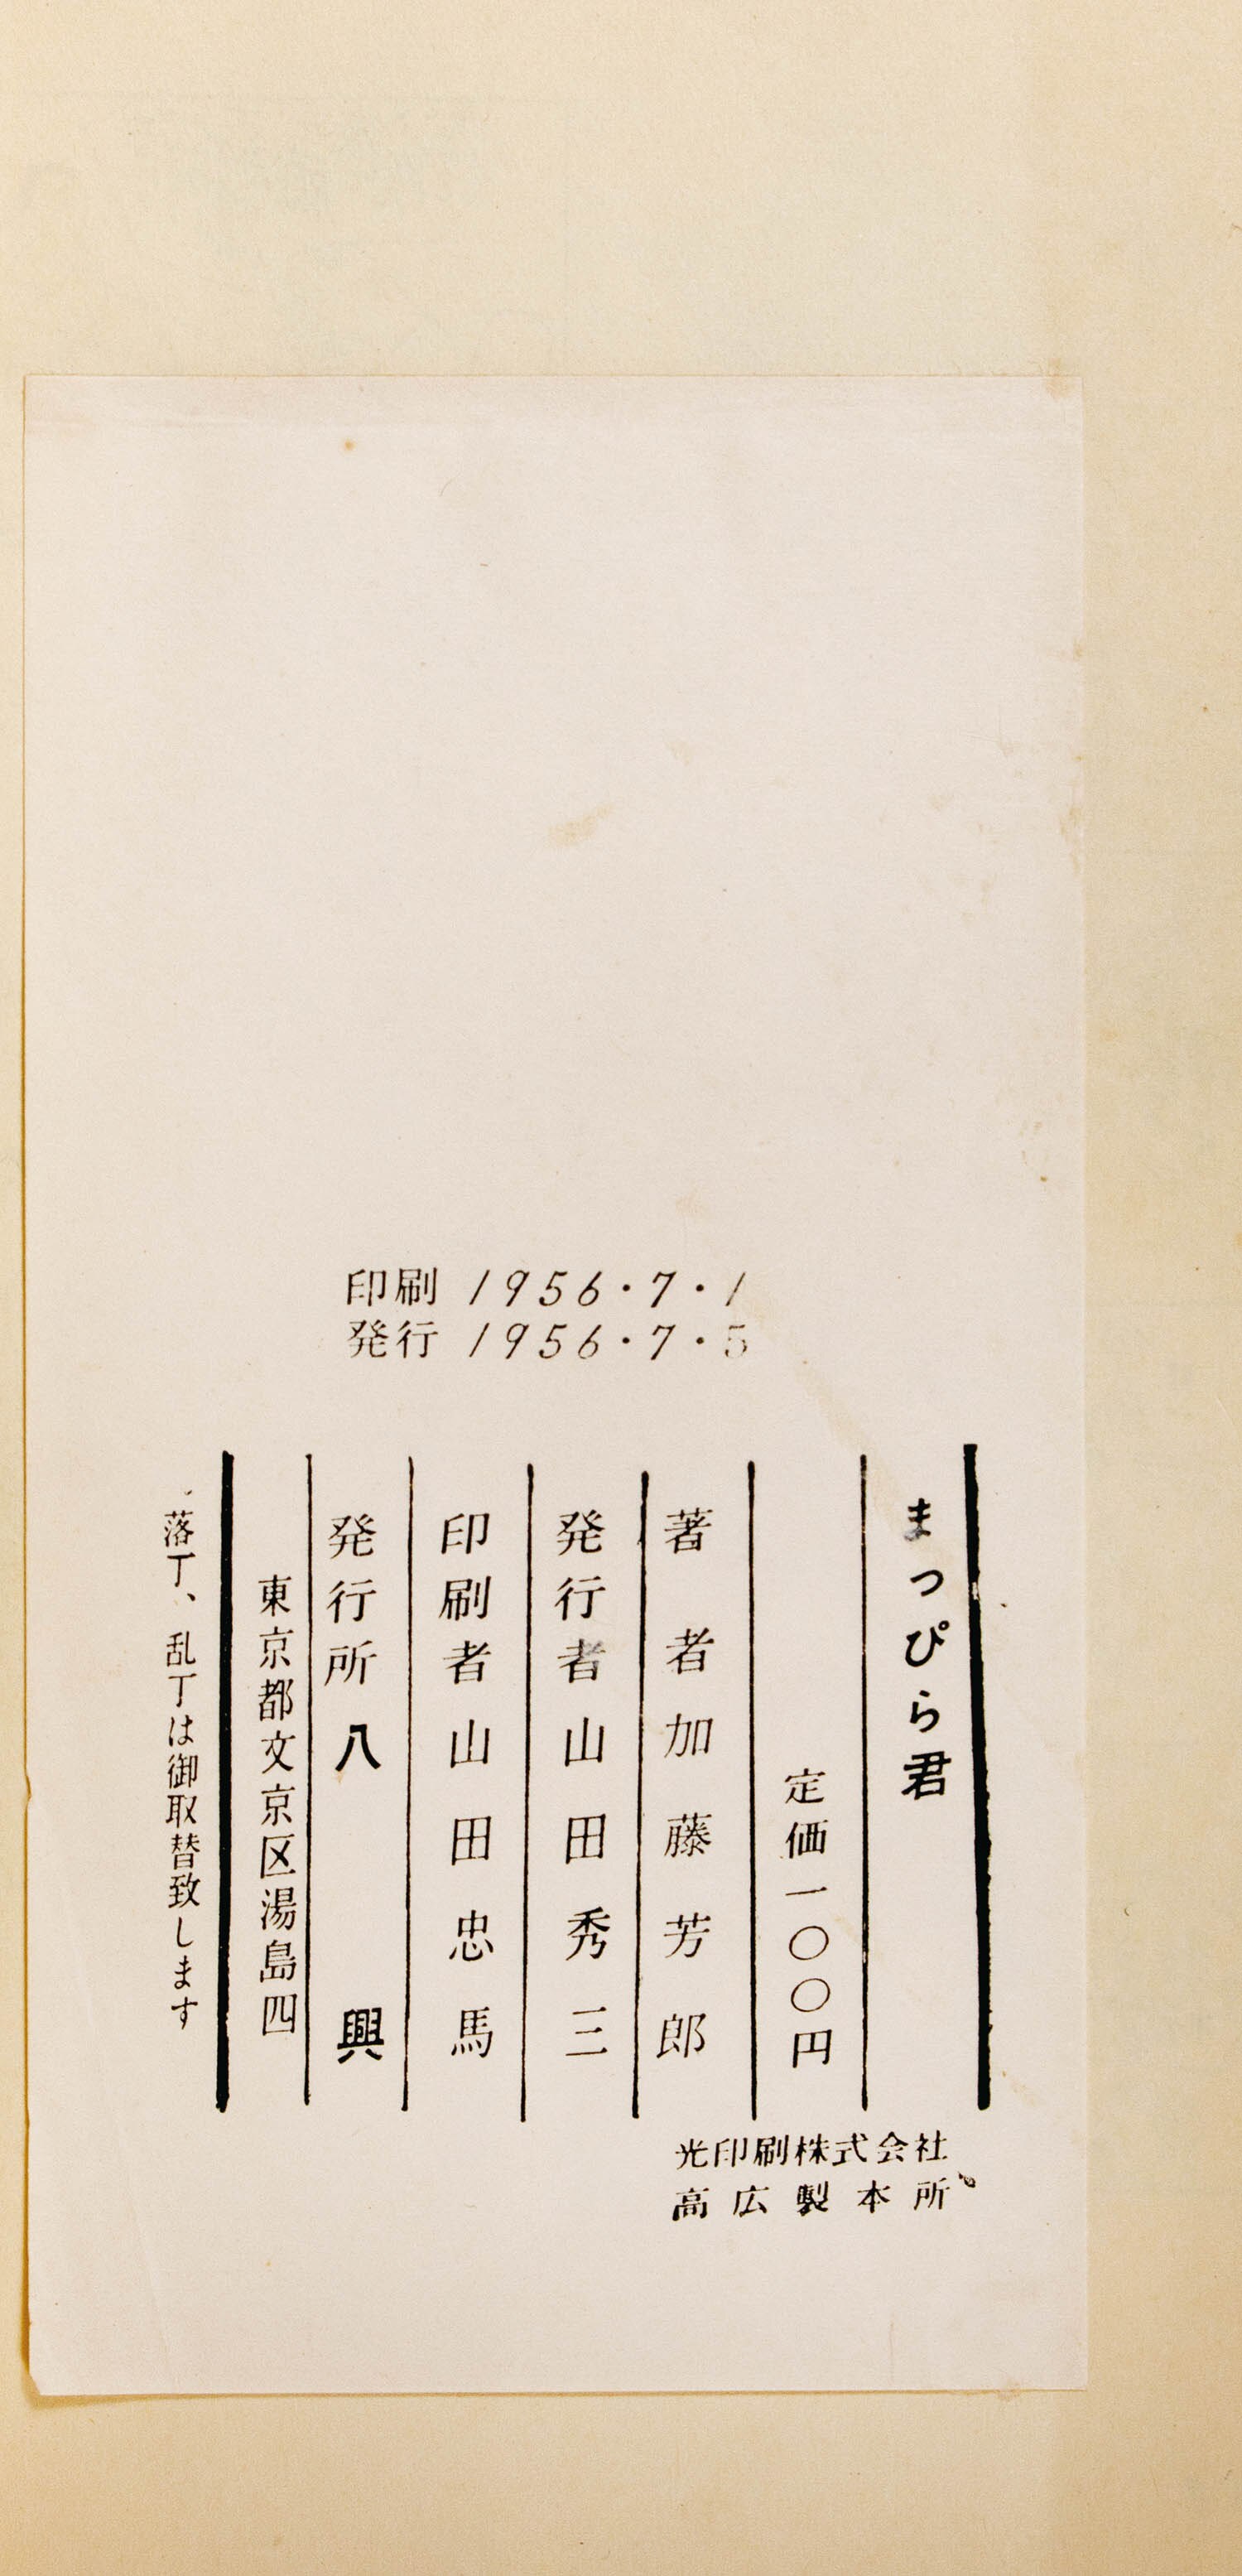 印刷 1956・7・1
発行 1956・7・5
まっぴら君
定価一〇〇円
著者加藤芳郎
発行者山田秀三
印刷者山田忠馬
発行所八興
東京都文京区湯島四
落丁、乱丁は御取替致します
光印刷株式会社
高広製本所